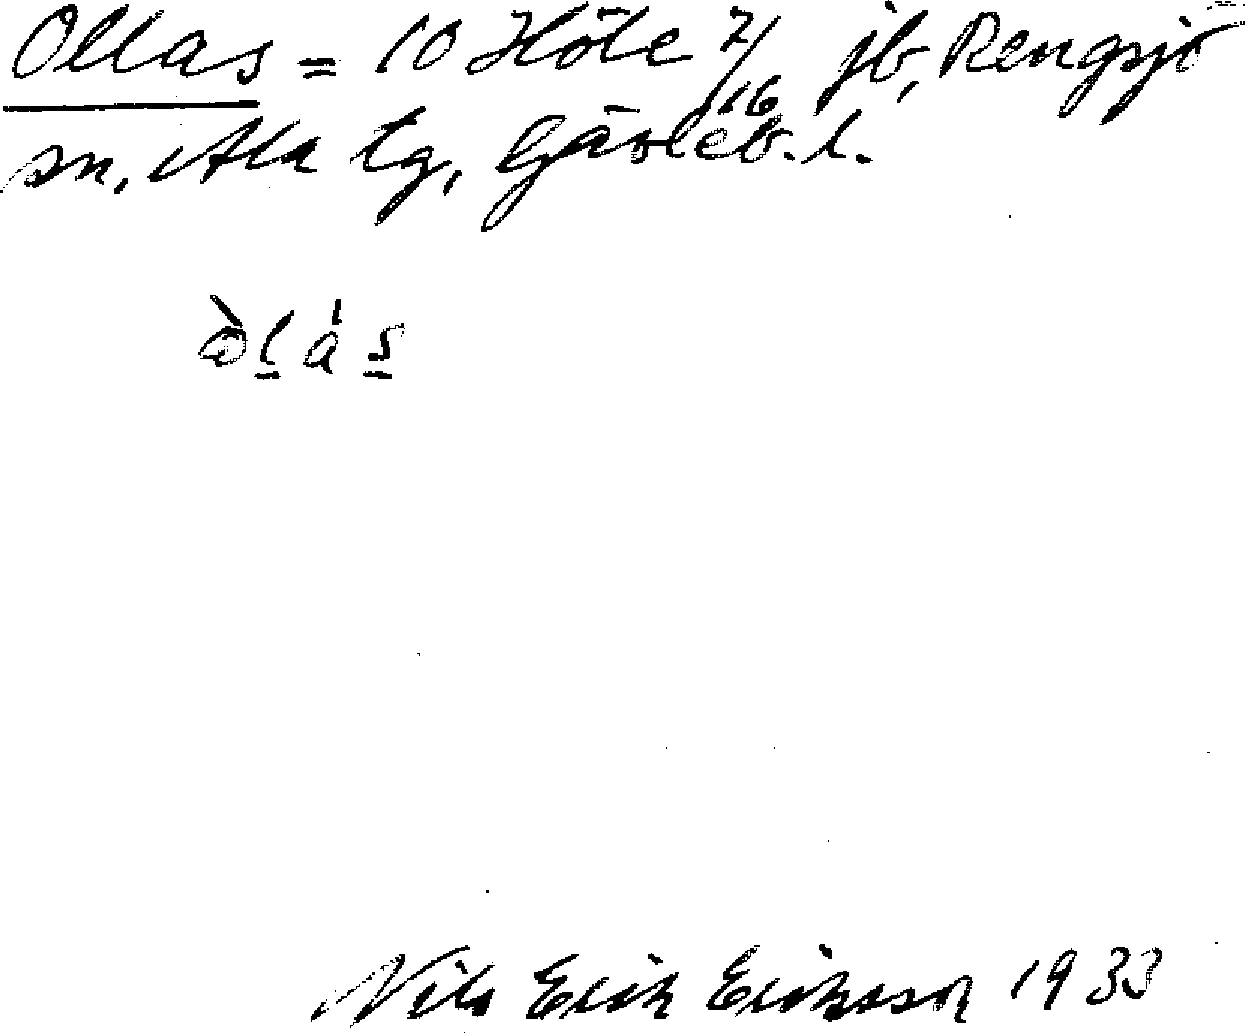 Ollas = 10 Höle 7/16 jb, Rengsjö
sn, Ala tg, Gävleb. l.
òlás
Nils Erik Eriksson 1933